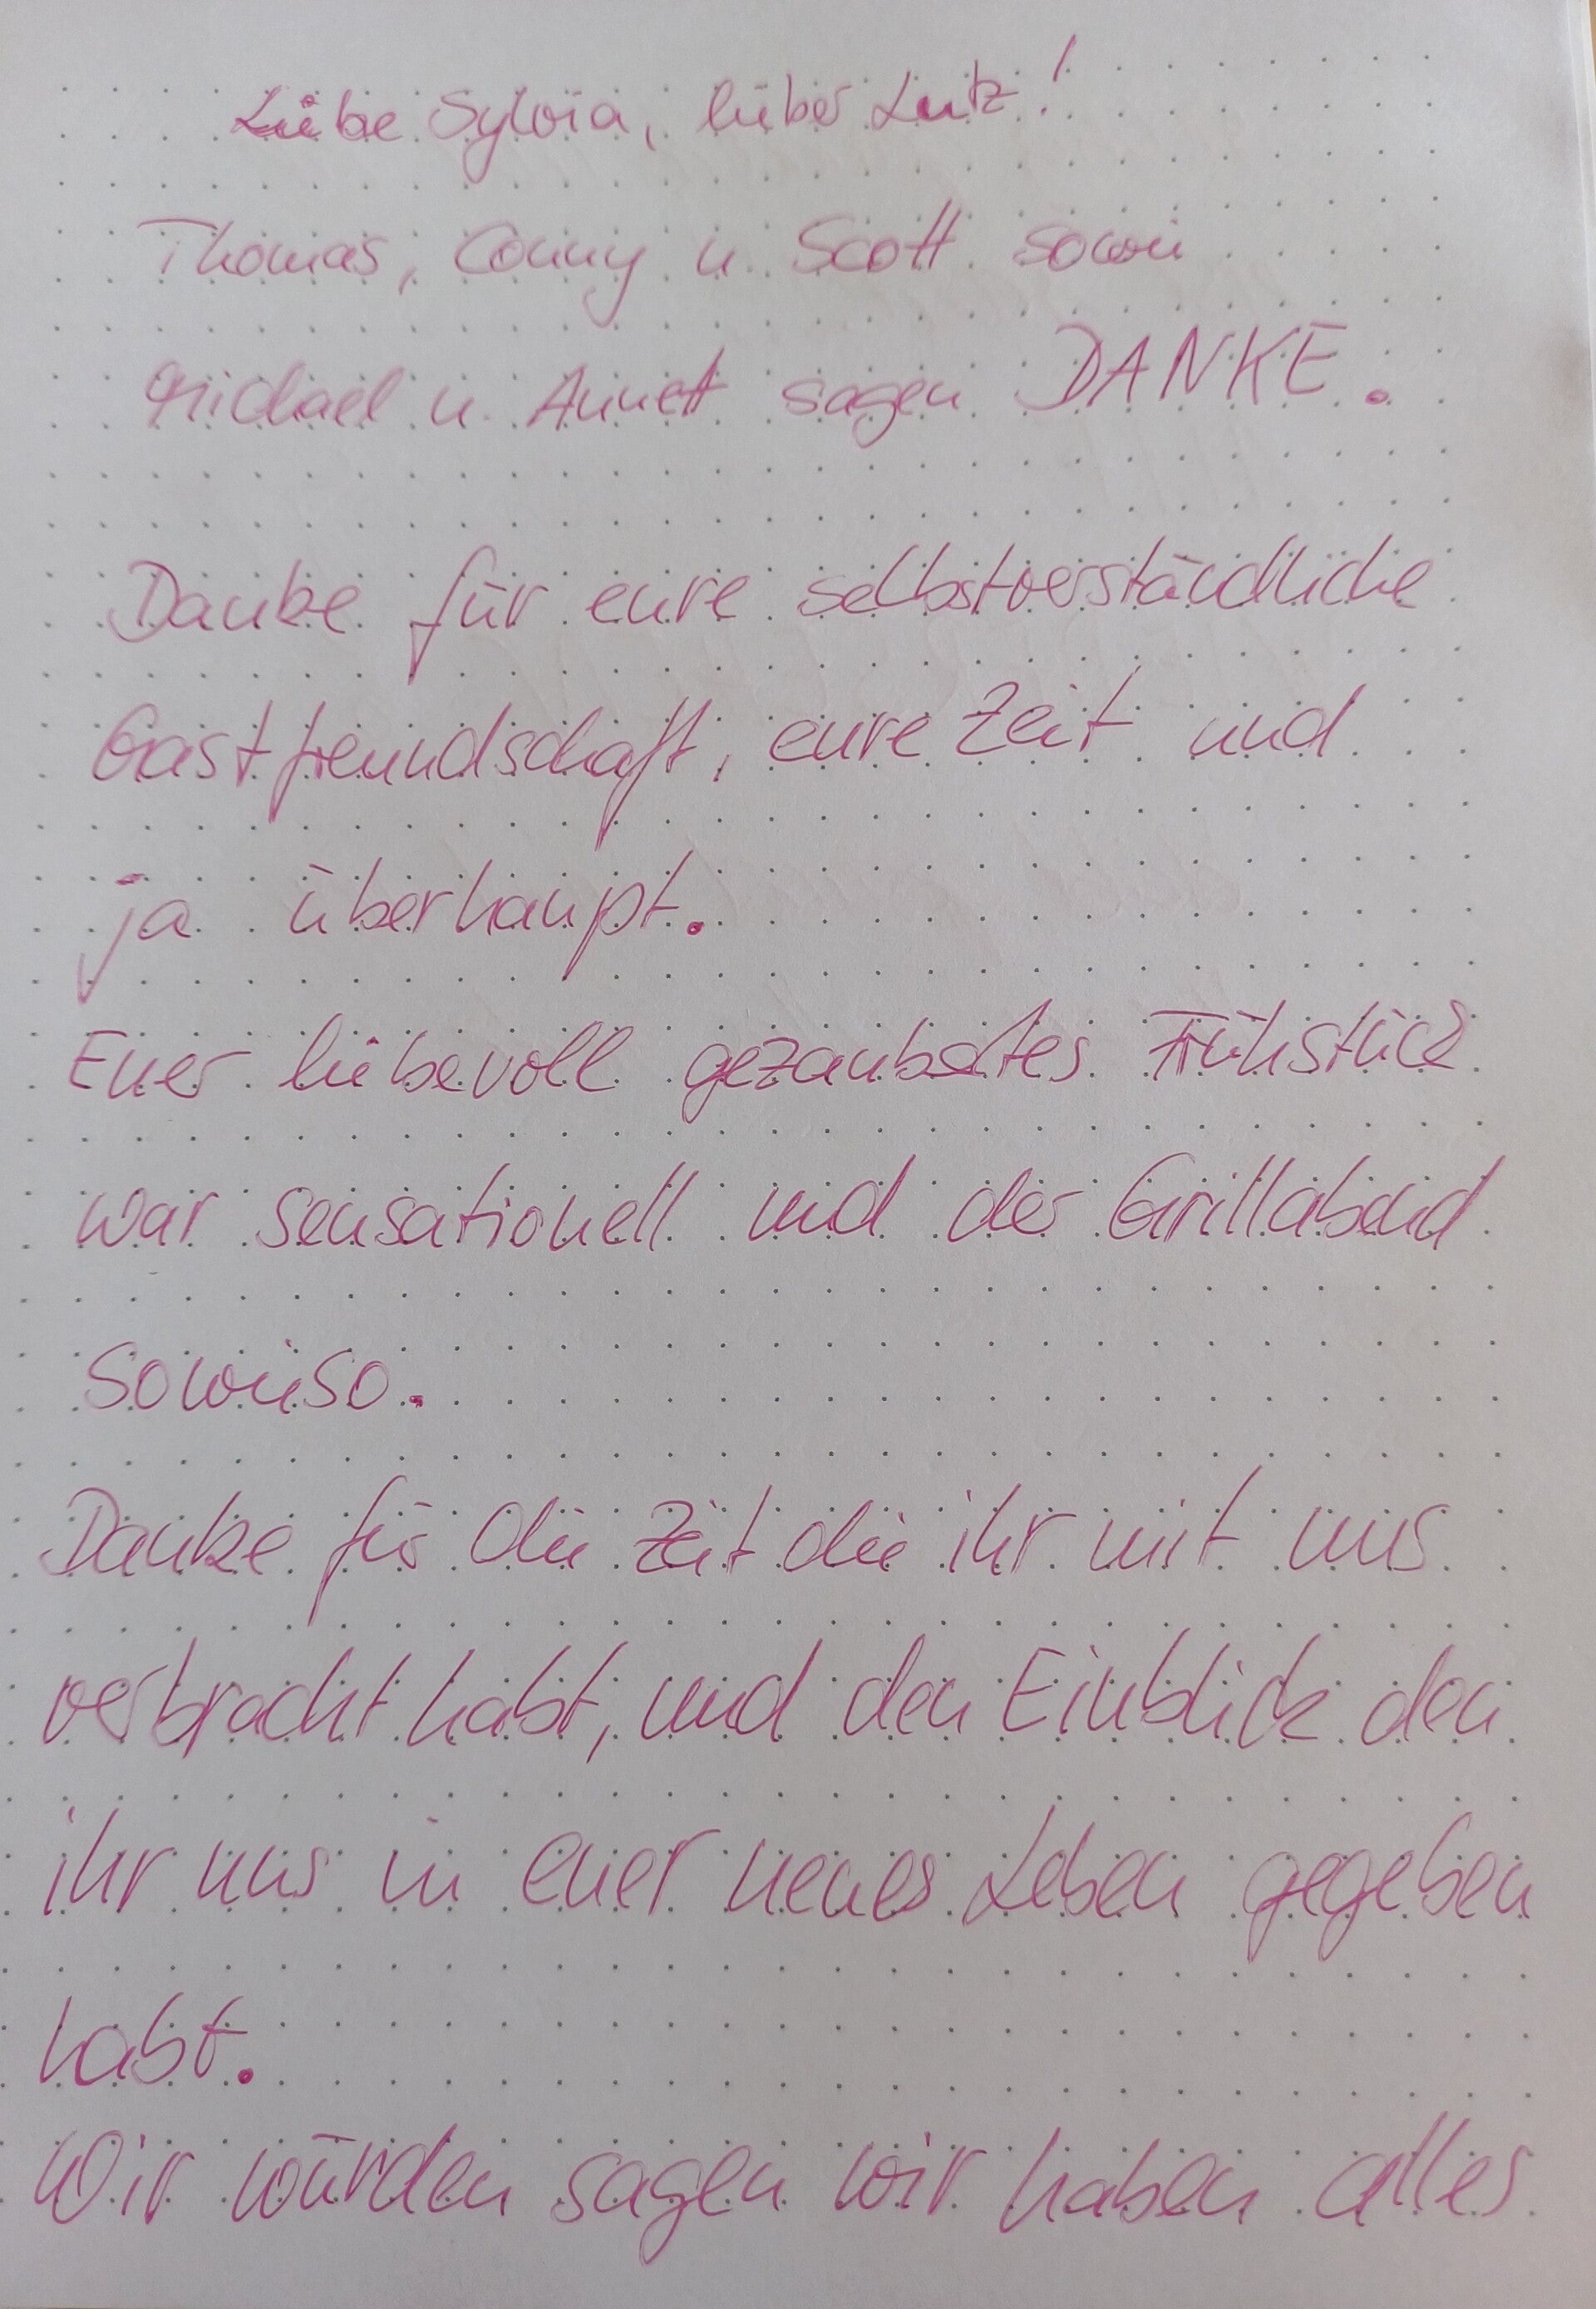 Liebe Sylvia, lieber Lutz!
Thomas, Conny u. Scott sowie
Michael u. Annett sagen DANKE.
Danke für eure selbstverständliche
Gastfreundschaft, eure Zeit und
ja überhaupt.
Euer liebevoll gezaubertes Frühstück
war sensationell und der Grillabend
sowieso.
Danke für die Zeit die ihr mit uns
verbracht habt, und den Einblick den
ihr uns in euer neues Leben gegeben
habt.
Wir würden sagen wir haben alles